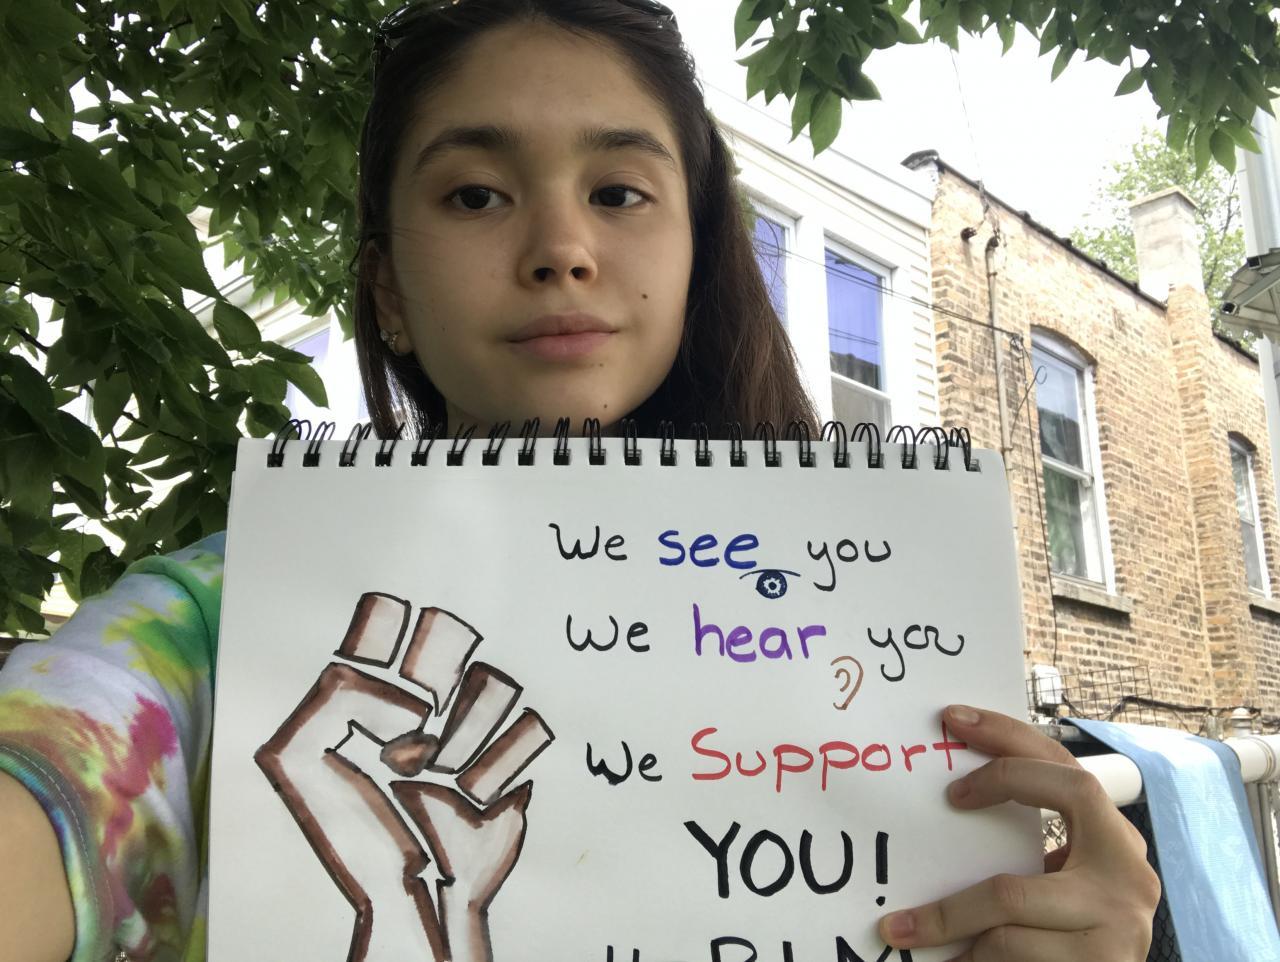 We see you
We hear you
We Support
YOU!
#BLM